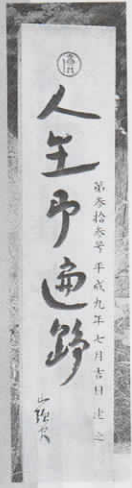 人生即遍路
第参拾参号 平成九年七月吉日 建之
山頭火